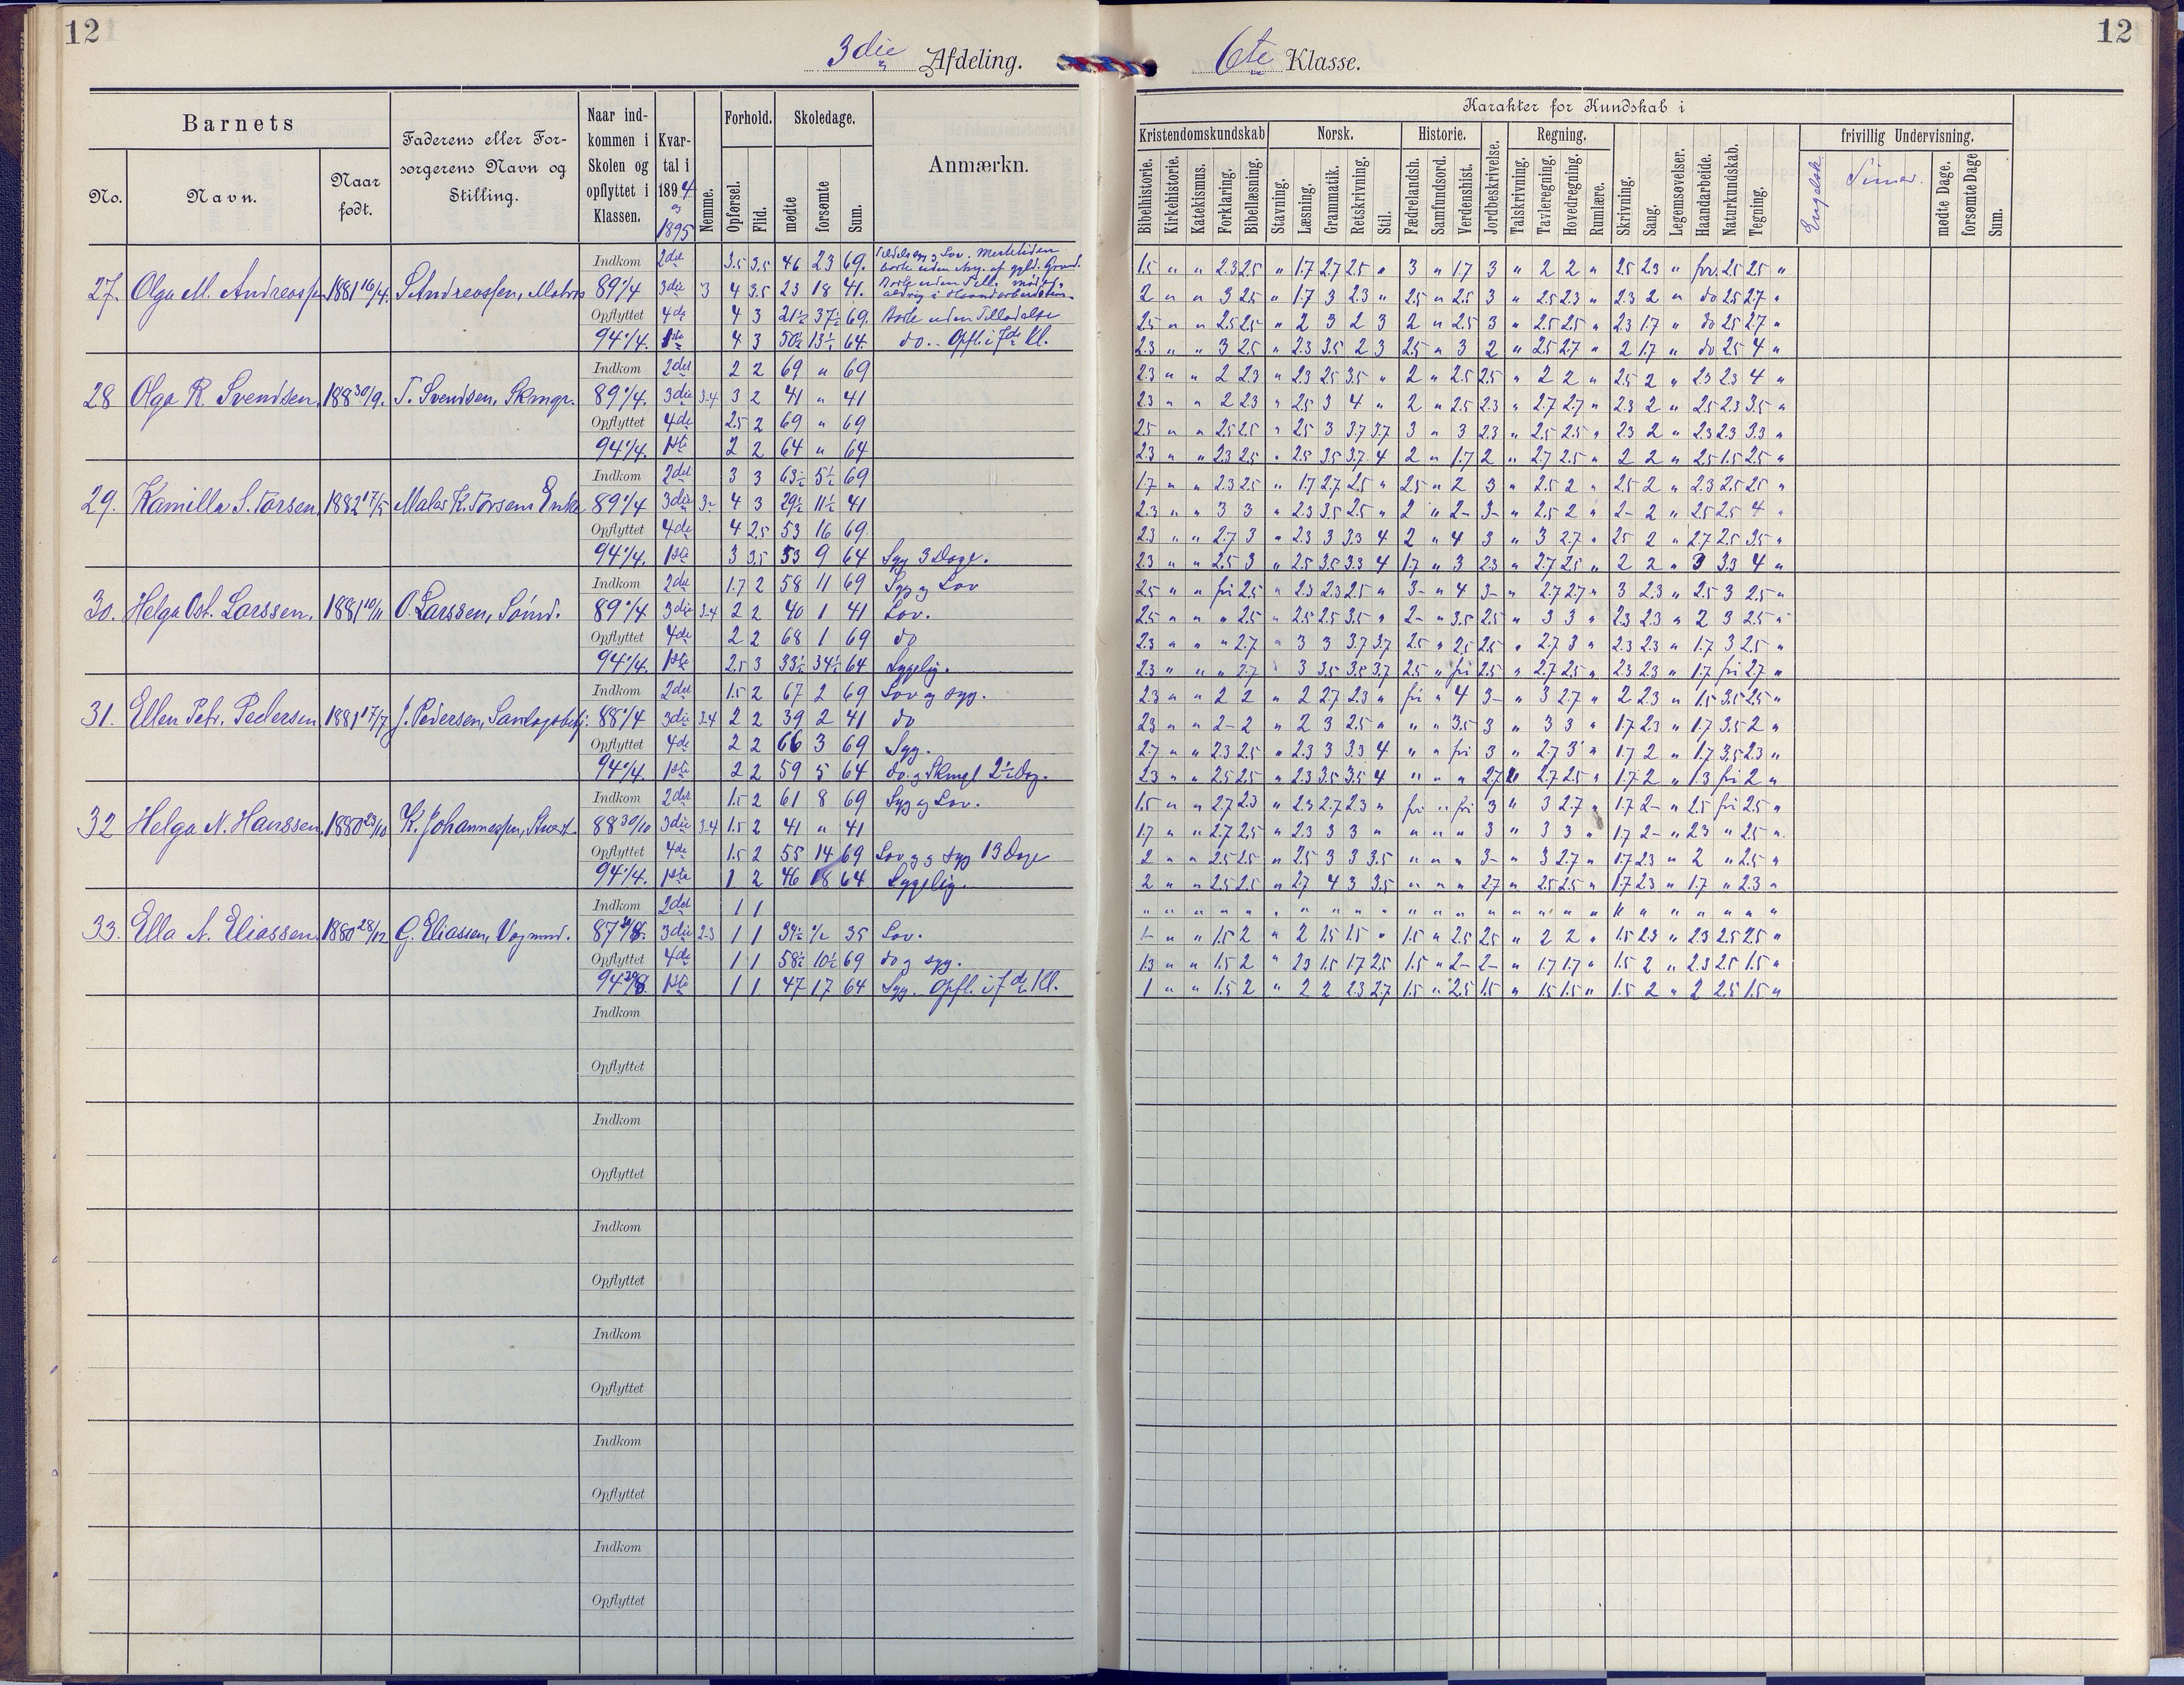 12
3die Afdeling.
6te Klasse.
12
Barnets
No.
Navn.
Naar født.
Faderens eller Forsørgerens Navn og Stilling.
Naar indkommen i Skolen og opflyttet i Klassen.
Kvartal i 1894 og 1895
Nemme.
Forhold.
Opførsel.
Flid.
Skoledage.
mødte
forsømte
Sum.
Anmærkn.
Karakter for Kundskab i
Kristendomskundskab
Bibelhistorie.
Kirkehistorie.
Katekismus.
Forklaring.
Bibellæsning.
Norsk.
Stavning.
Læsning.
Grammatik.
Retskrivning.
Stil.
Historie.
Fædrelandsh.
Samfundsord.
Verdenshist.
Jordbeskrivelse.
Regning.
Talskrivning.
Tavleregning.
Hovedregning.
Rumlære.
Skrivning.
Sang.
Legemsøvelser.
Haandarbeide.
Naturkundskab.
Tegning.
frivillig Undervisning.
Engelsk.
Timer.
mødte Dage.
forsømte Dage
Sum.
27. Olga M. Andreassen 1881 16/4. S. Andreassen, Matros
Indkom 2det 3.5 3.5 46 23 69.
89 1/4 3die 3 4 3.5 23 18 41.
Opflyttet 4de 4 3 21½ 37½ 69. Borte uden Tilladelse
94 1/4. 1ste 4 3 50½ 13½ 64. do. - Opfl. i 7de Kl.
1.5 " " 2.3 2.5 " 1.7 2.7 2.5 " 3 " 1.7 3 " 2 2 " 2.5 2.3 " for. 2.5 2.5 "
2 " " 3 2.5 " 1.7 3 2.3 " 2.5 " 2.5 3 " 2.5 2.3 " 2.3 2 " do 2.5 2.7 "
2.5 " " 2.5 2.5 " 2 3 2 3 2 " 2.5 3 " 2.5 2.5 " 2.3 1.7 " do 2.5 2.7 "
2.3 " " 3 2.5 " 2.3 3.5 2 3 2.5 " 3 2 " 2.5 2.7 " 2 1.7 " do 2.5 4 "
28 Olga R. Svendsen. 188 30/9. T. Svendsen, Skmgr.
Indkom 2det 2 2 69 " 69
89 1/4. 3die 3.4 3 2 41 " 41
Opflyttet 4de 2.5 2 69 " 69
94 1/4. 1ste 2 2 64 " 64
2.3 " " 2 2.3 " 2.3 2.5 3.5 " 2 " 2.5 2.5 " 2 2 " 2.5 2 " 2.3 2.3 4 "
2.3 " " 2 2.3 " 2.5 3 4 " 2 " 2.5 2.3 " 2.7 2.7 " 2.3 2 " 2.5 2.3 3.5 "
2.5 " " 2.5 2.5 " 2.5 3 3.7 3.7 3 " 3 2.3 " 2.5 2.5 " 2.3 2 " 2.3 2.3 3.3 "
2.3 " " 2.3 2.5 " 2.5 3.5 3.7 4 2 " 1.7 2 " 2.7 2.5 " 2 2 " 2.5 1.5 2.5 "
29. Kamilla S. Torsen. 1882 17/5 Maler K. Torsens Enke
Indkom 2det 3 3 63½ 5½ 69
89 1/4 3die 3- 4 3 29½ 11½ 41
Opflyttet 4de 4 2.5 53 16 69.
94 1/4. 1ste 3 3.5 53 9 64 Syg 3 Dage.
1.7 " " 2.3 2.5 " 1.7 2.7 2.5 " 2.5 " 2 3 " 2.5 2 " 2.5 2 " 2.3 2.5 2.5 "
2.3 " " 3 3 " 2.3 3.5 2.5 " 2 " 2- 3- " 2.5 2 " 2- 2 " 2.5 2.5 4 "
2.3 " " 2.7 3 " 2.3 3 3.3 4 2 " 4 3 " 3 2.7 " 2.5 2 " 2.7 2.5 3.5 "
2.3 " " 2.5 3 " 2.5 3.5 3.3 4 1.7 " 3 2.3 " 2.7 2.5 " 2 2 " 3 3.3 4 "
30. Helga Ost. Larssen. 1881 10/11 O. Larssen, Sømd.
Indkom 2det 1.7 2 58 11 69 Syg og Lov
89 1/4 3die 3.4 2 2 40 1 41 Lov.
Opflyttet 4de 2 2 68 1 69 do
94 1/4. 1ste 2.5 3 33½ 34½ 64 Sygelig.
2.5 " " fri 2.5 " 2.3 2.3 2.5 " 3- " 4 3- " 2.7 2.7 " 3 2.3 " 2.5 3 2.5 "
2.5 " " " 2.5 " 2.5 2.5 3.5 " 2- " 3.5 2.5 " 3 3 " 2.3 2.3 " 2 3 2.5 "
2.3 " " " 2.7 " 3 3 3.7 3.7 2.5 " 2.5 2.5 " 2.7 3 " 2.3 2.3 " 1.7 3 2.5 "
2.3 " " " 2.7 " 3 3.5 3.5 3.7 2.5 " fri 2.5 " 2.7 2.5 " 2.3 2.3 " 1.7 fri 2.7 "
31. Ellen Petr. Pedersen 1881 17/7 J. Pedersen,
Indkom 2det 1.5 2 67 2 69 Lov og syg.
88 1/4 3die 3.4 2 2 39 2 41 do
Opflyttet 4de 2 2 66 3 69 Syg.
94 1/4. 1ste 2 2 59 5 64 do. og Skmgl 2½ Dag.
2.3 " " 2 2 " 2 2.7 2.3 " fri " 4 3- " 3 2.7 " 2 2.3 " 1.5 3.5 2.5 "
2.3 " " 2- 2 " 2 3 2.5 " " " 3.5 3 " 3 3 " 1.7 2.3 " 1.7 3.5 2 "
2.7 " " 2.3 2.5 " 2.3 3 3.3 4 " " fri 3 " 2.7 3 " 1.7 2 " 1.7 3.5 2.3 "
2.3 " " 2.5 2.5 " 2.3 3.5 3.5 4 " " " 2.7 " 2.7 2.5 " 1.7 2 " 1.3 fri 2 "
32 Helga N. Hanssen. 1880 23/10 K. Johannessen,
Indkom 2det 1.5 2 61 8 69 Syg og Lov.
88 30/10 3die 3.4 1.5 2 41 " 41
Opflyttet 4de 1.5 2 55 14 69 Lov og syg 13 Dage
94 1/4. 1ste 1 2 46 18 64 Sygelig.
1.5 " " 2.7 2.3 " 2.3 2.7 2.3 " fri " fri 3 " 3 2.7 " 1.7 2- " 2.5 fri 2.5 "
1.7 " " 2.7 2.5 " 2.3 3 3 " " " " 3 " 3 3 " 1.7 2- " 2.3 " 2.5 "
2 " " 2.5 2.5 " 2.5 3 3 3.5 " " " 3- " 3 2.7 " 1.7 2.3 " 2 " 2.5 "
2 " " 2.5 2.5 " 2.7 4 3 3.5 " " " 2.7 " 2.5 2.5 " 1.7 2.3 " 1.7 " 2.3 "
33. Ella A. Eliassen. 1880 28/12 G. Eliassen, Vognmd.
Indkom 2det 1 1
3die 2.3 1 1 34½ ½ 35 Lov.
Opflyttet 4de 1 1 58½ 10½ 69 do og syg.
94 1ste 1 1 47 17 64 Syg. Opfl. i 7de Kl.
" " " " " " " " " " " " " " " " " " " " " " " " "
1- " " 1.5 2 " 2 1.5 1.5 " 1.5 " 2.5 2.5 " 2 2 " 1.5 2.3 " 2.3 2.5 2.5 "
1.3 " " 1.5 2 " 2.3 1.5 1.7 2.5 1.5 " 2- 2- " 1.7 1.7 " 1.5 2 " 2.3 2.5 1.5 "
1 " " 1.5 2 " 2 2 2.3 2.7 1.5 " 2.5 1.5 " 1.5 1.5 " 1.5 2 " 2 2.5 1.5 "
Indkom
Opflyttet
Indkom
Opflyttet
Indkom
Opflyttet
Indkom
Opflyttet
Indkom
Opflyttet
Indkom
Opflyttet